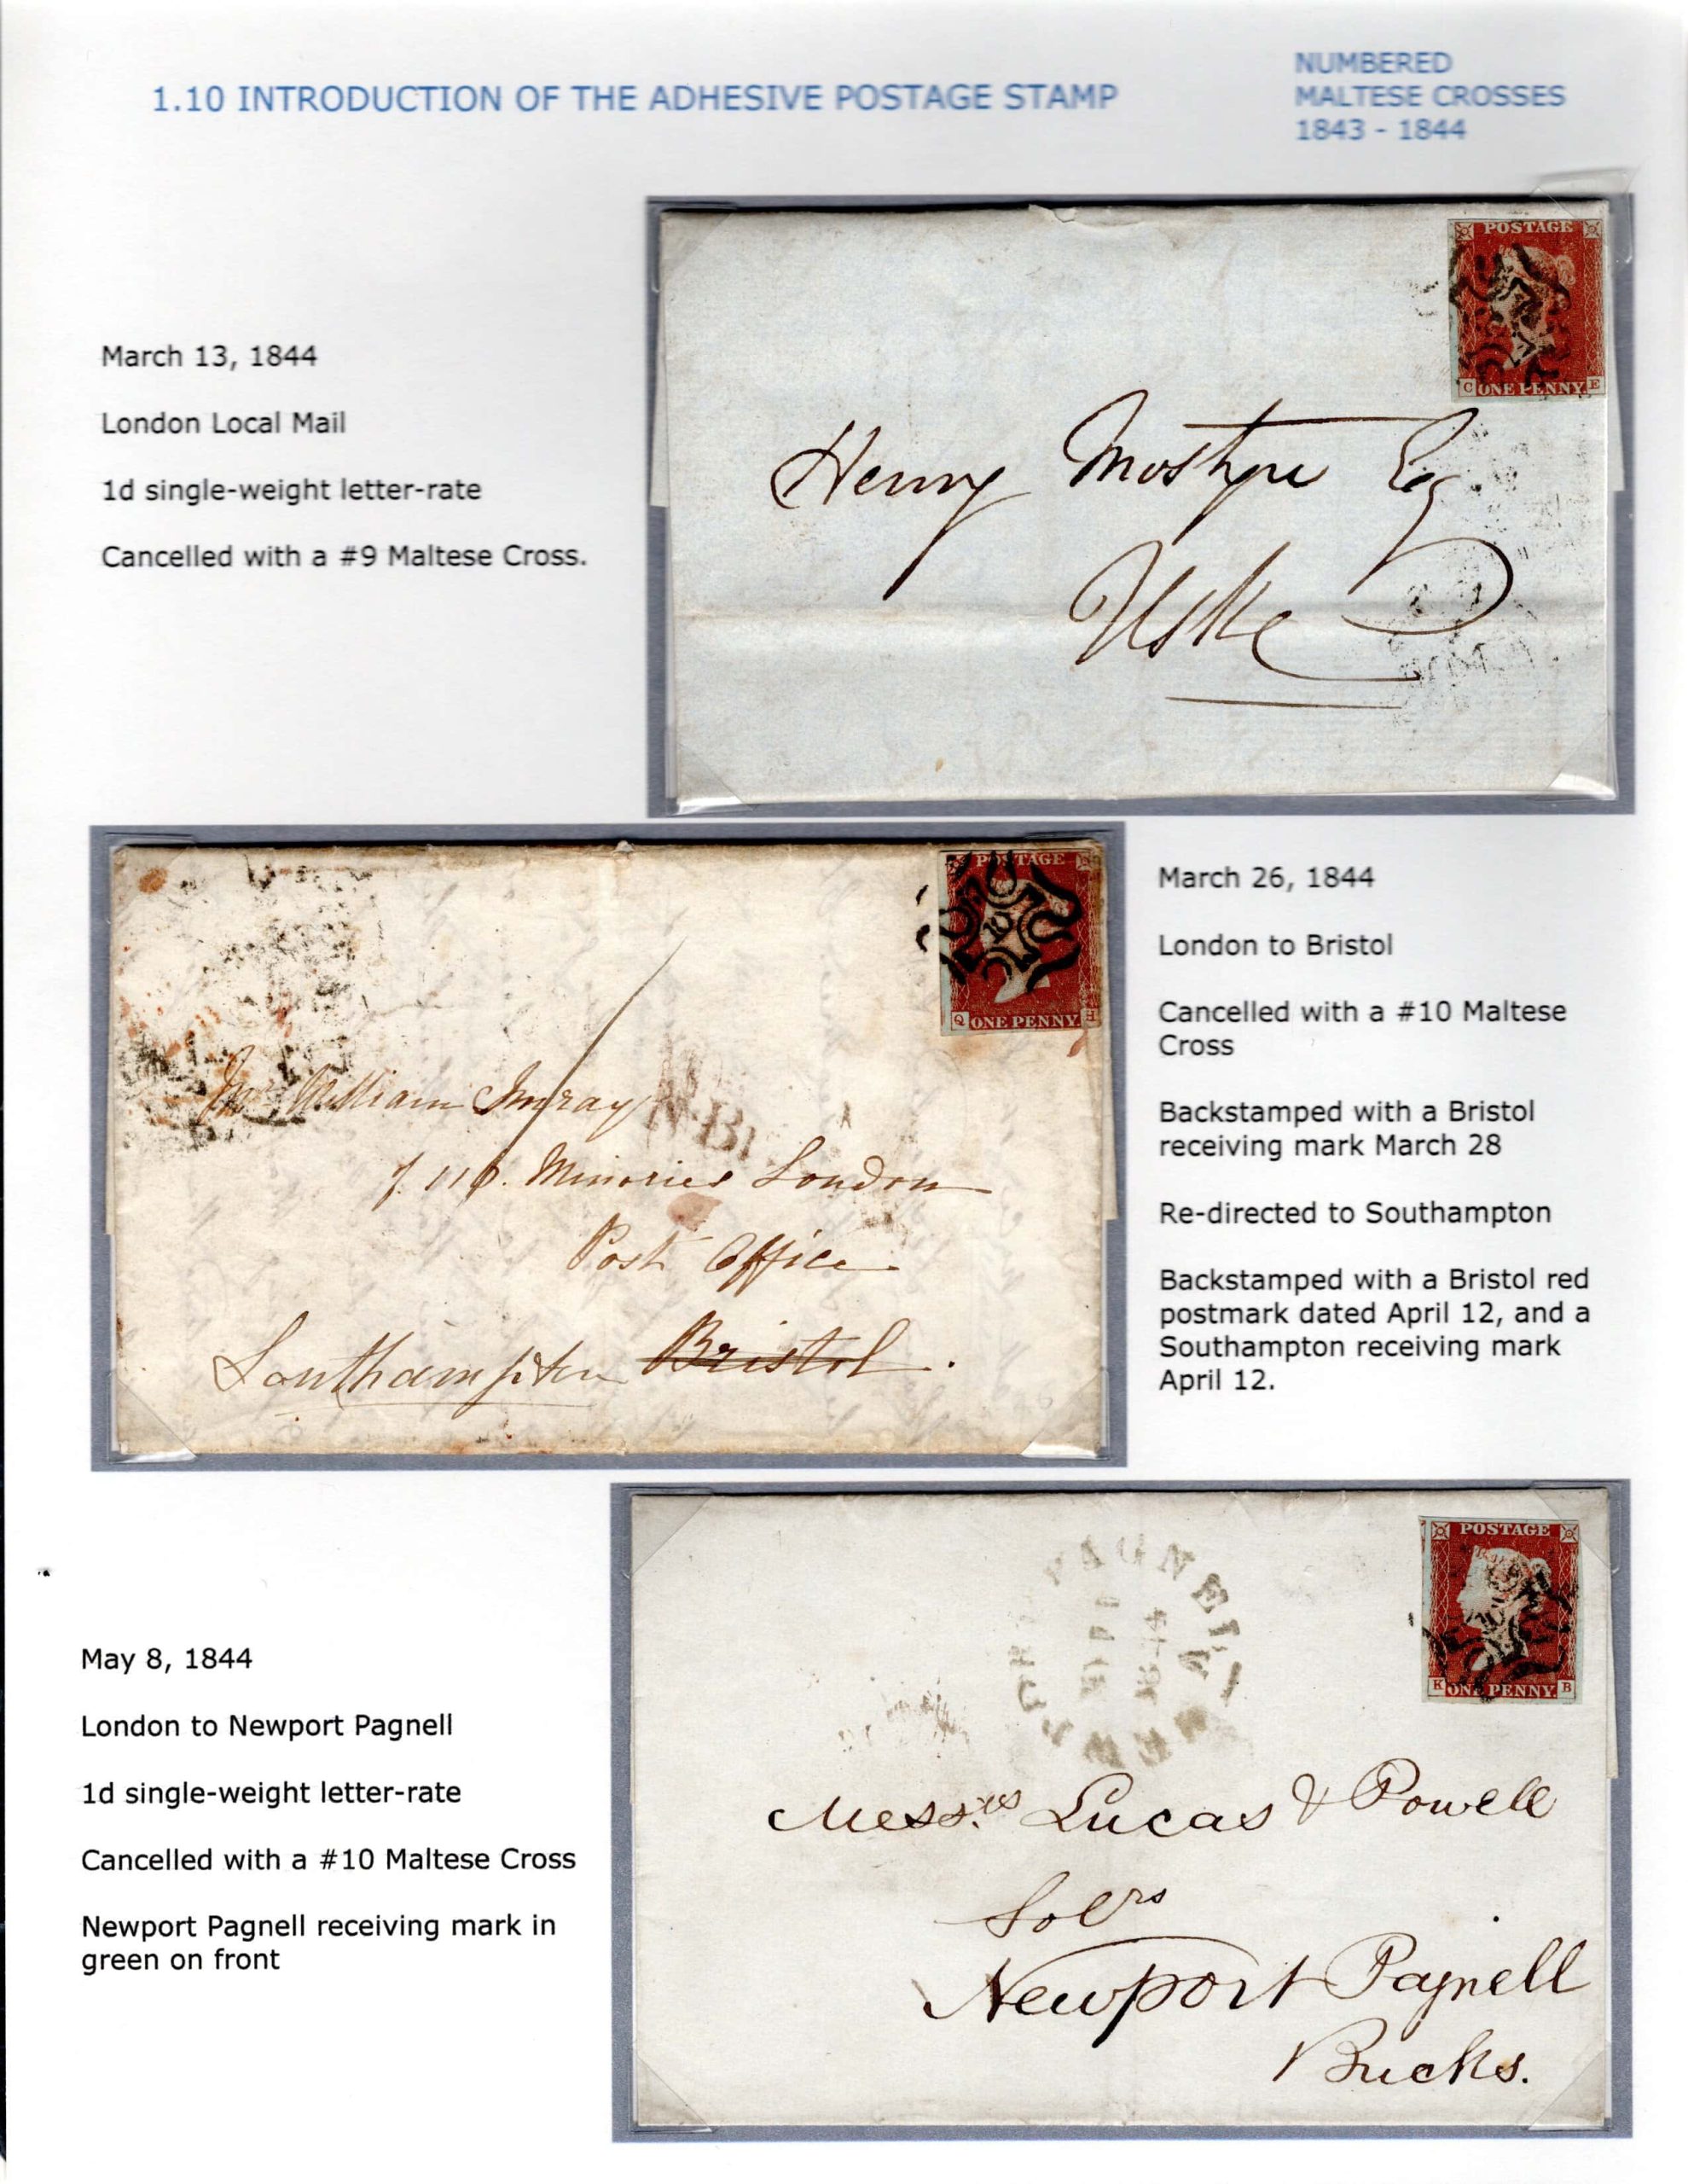 1.10 INTRODUCTION OF THE ADHESIVE POSTAGE STAMP
NUMBERED
MALTESE CROSSES
1843 - 1844
March 13, 1844
London Local Mail
1d single-weight letter-rate
Cancelled with a #9 Maltese Cross.
POSTAGE
C ONE PENNY. E
Henry Mostyn Esq
Uske
POSTAGE
10
Q ONE PENNY. H
Mr William Imray
116. Minories London
Post Office
Southampton Bristol.
March 26, 1844
London to Bristol
Cancelled with a #10 Maltese
Cross
Backstamped with a Bristol
receiving mark March 28
Re-directed to Southampton
Backstamped with a Bristol red
postmark dated April 12, and a
Southampton receiving mark
April 12.
May 8, 1844
London to Newport Pagnell
1d single-weight letter-rate
Cancelled with a #10 Maltese Cross
Newport Pagnell receiving mark in
green on front
NEWPORT PAGNELL
POSTAGE
K ONE PENNY. B
Messrs Lucas & Powell
Solrs
Newport Pagnell
Bucks.